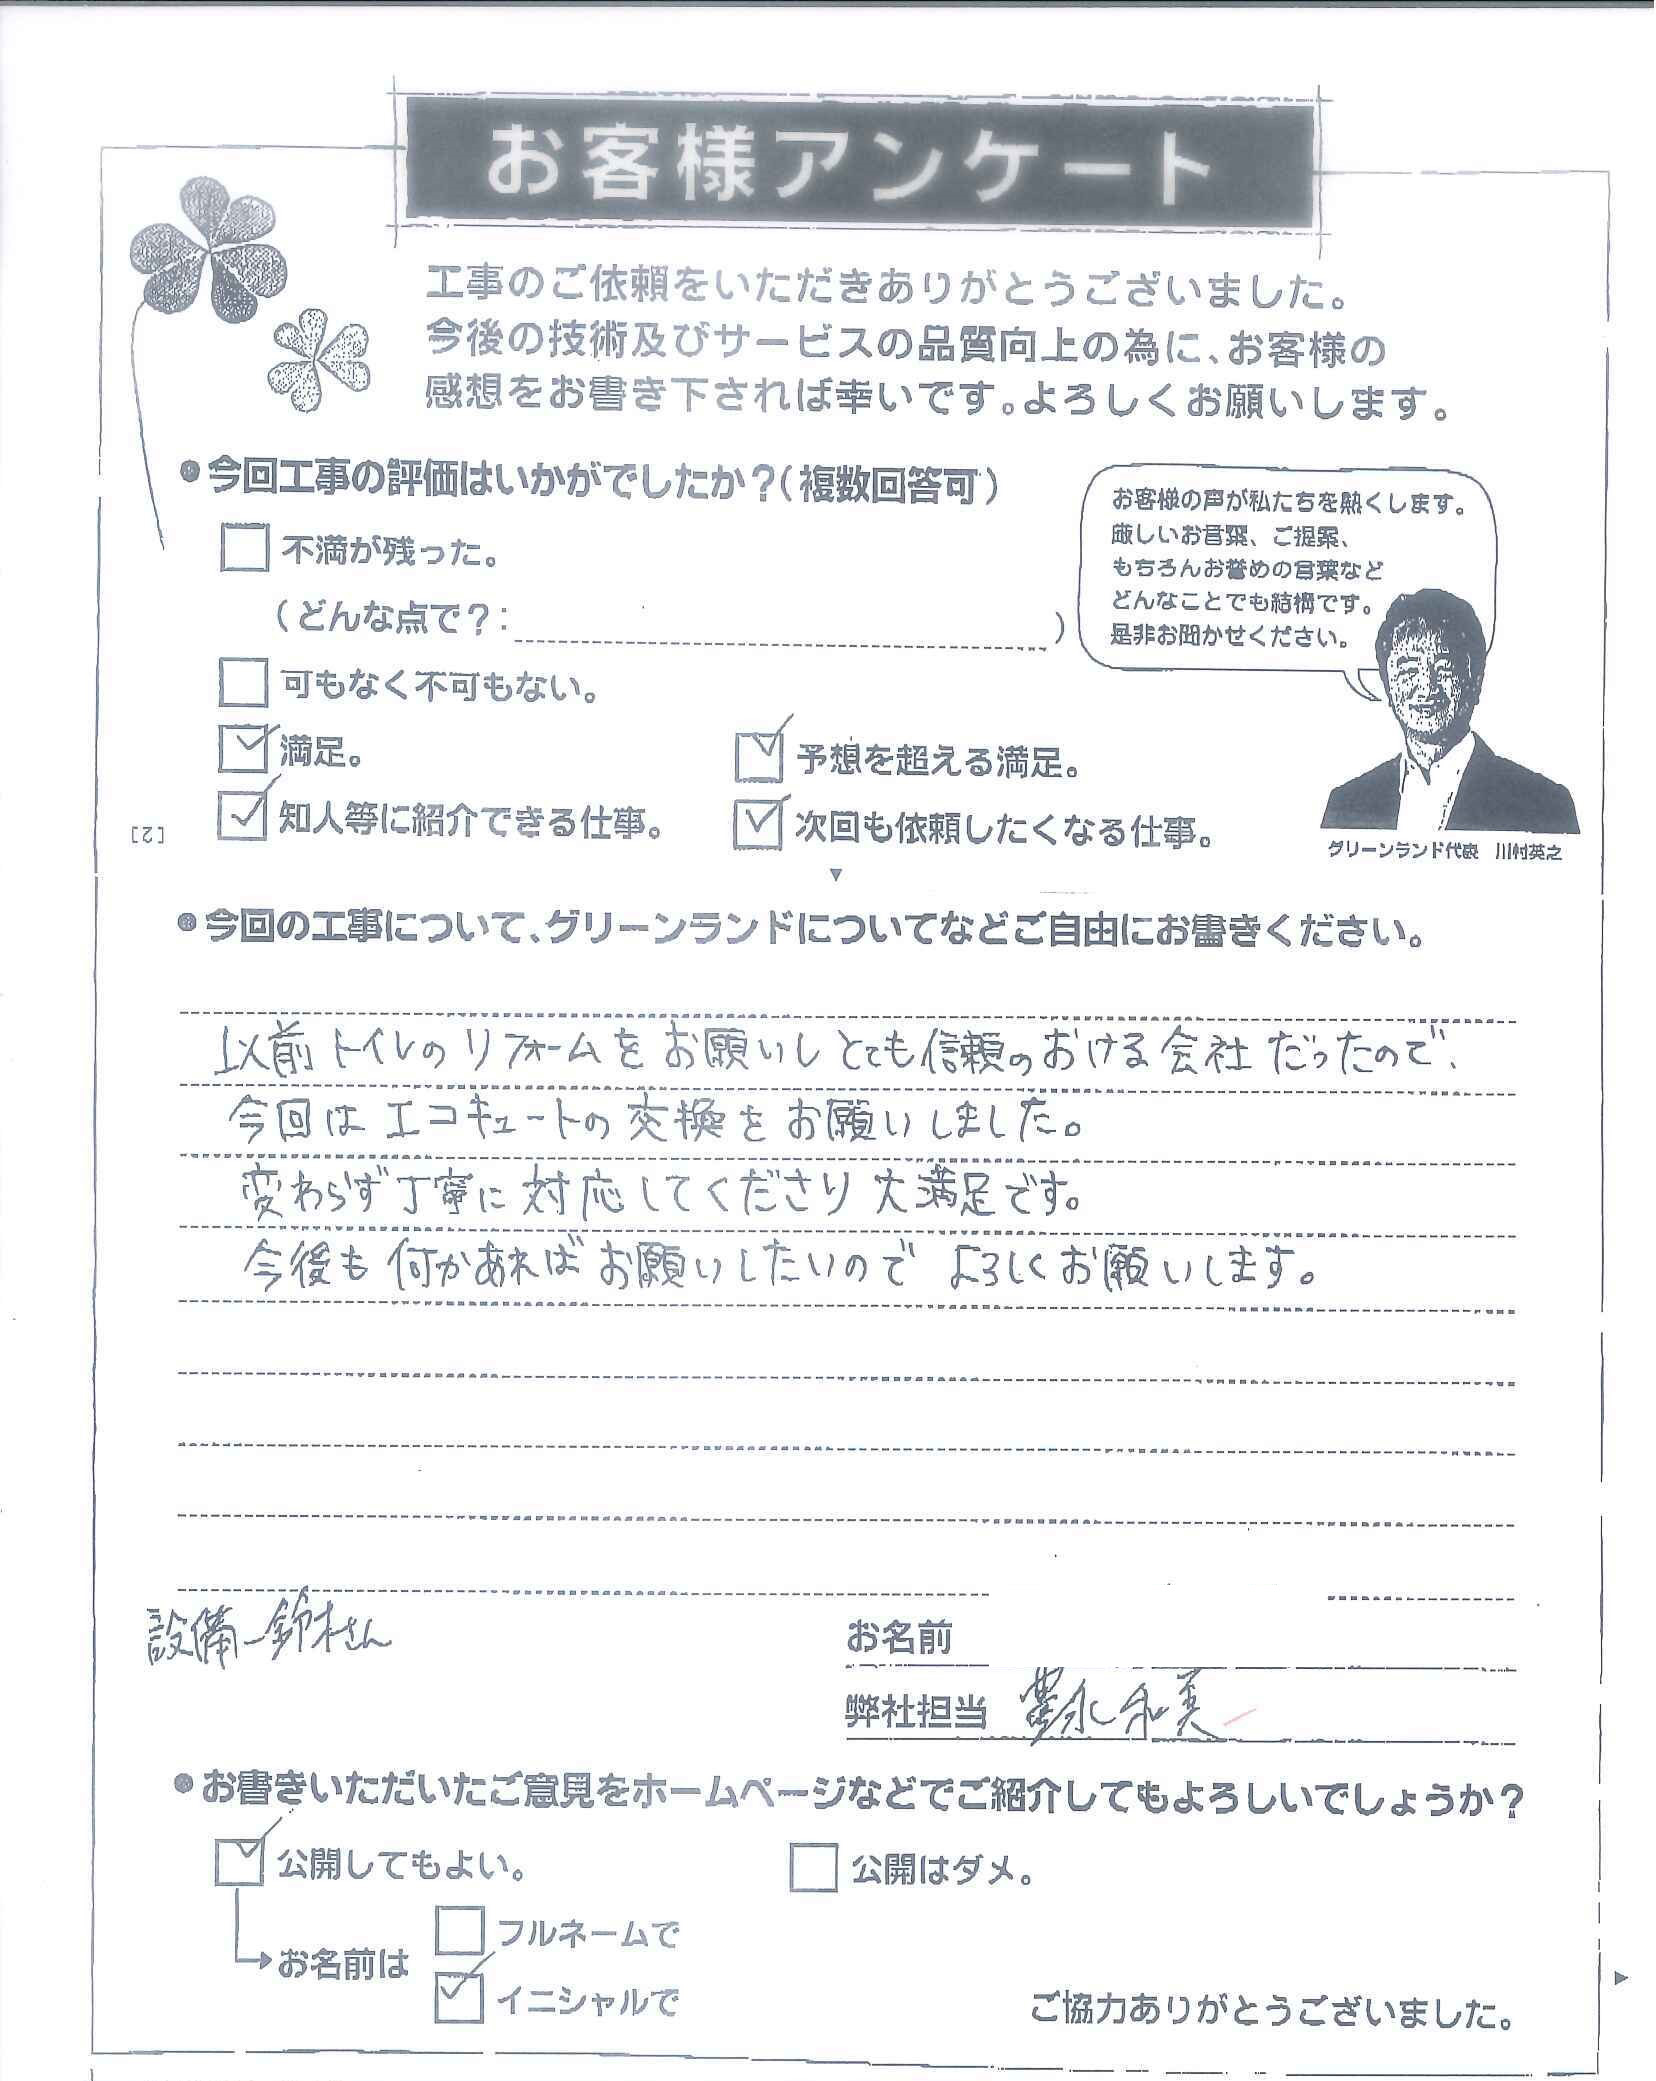 お客様アンケート
工事のご依頼をいただきありがとうございました。
今後の技術及びサービスの品質向上の為に、お客様の
感想をお書き下されば幸いです。よろしくお願いします。
●今回工事の評価はいかがでしたか?(複数回答可)
不満が残った。
(どんな点で?: )
可もなく不可もない。
満足。
予想を超える満足。
知人等に紹介できる仕事。
次回も依頼したくなる仕事。
お客様の声が私たちを熱くします。
厳しいお言葉、ご提案、
もちろんお誉めの言葉など
どんなことでも結構です。
是非お聞かせください。
グリーンランド代表 川村英之
[2]
●今回の工事について、グリーンランドについてなどご自由にお書きください。
以前トイレのリフォームをお願いしとても信頼のおける会社だったので、
今回はエコキュートの交換をお願いしました。
変わらず丁寧に対応してくださり大満足です。
今後も何かあればお願いしたいのでよろしくお願いします。
設備 鈴木さん
お名前
弊社担当 永 和美
●お書きいただいたご意見をホームページなどでご紹介してもよろしいでしょうか?
公開してもよい。
公開はダメ。
お名前は
フルネームで
イニシャルで
ご協力ありがとうございました。